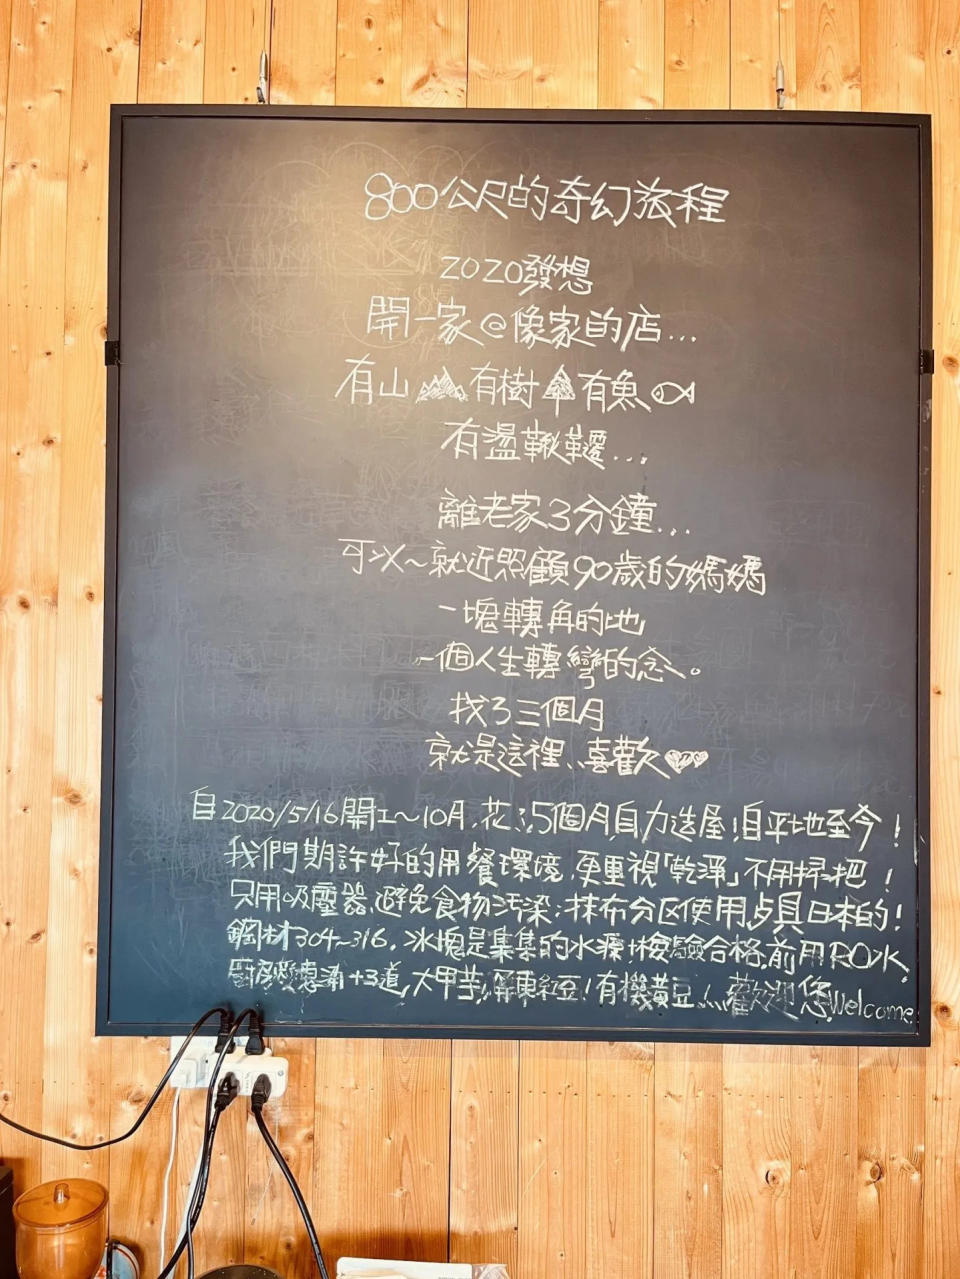 800公尺的奇幻旅程
2020發想
開一家@像家的店...
有山 有樹 有魚
有盪鞦韆...
離老家3分鐘...
可以~就近照顧90歲的媽媽
一塊轉角的地
一個人生轉彎的念。
找了三個月
就是這裡、喜歡
自2020/5/16開工~10月,花了5個月,自力造屋!自平地至今!
我們期許好的用餐環境,更重視「乾淨」不用掃把!
只用吸塵器,避免食物污染;抹布分區使用,
鋼材304~316,冰塊是集集的水源+檢驗合格,前用RO水,
+3道,大甲芋,屏東紅豆,有機黃豆,歡迎您,Welcome